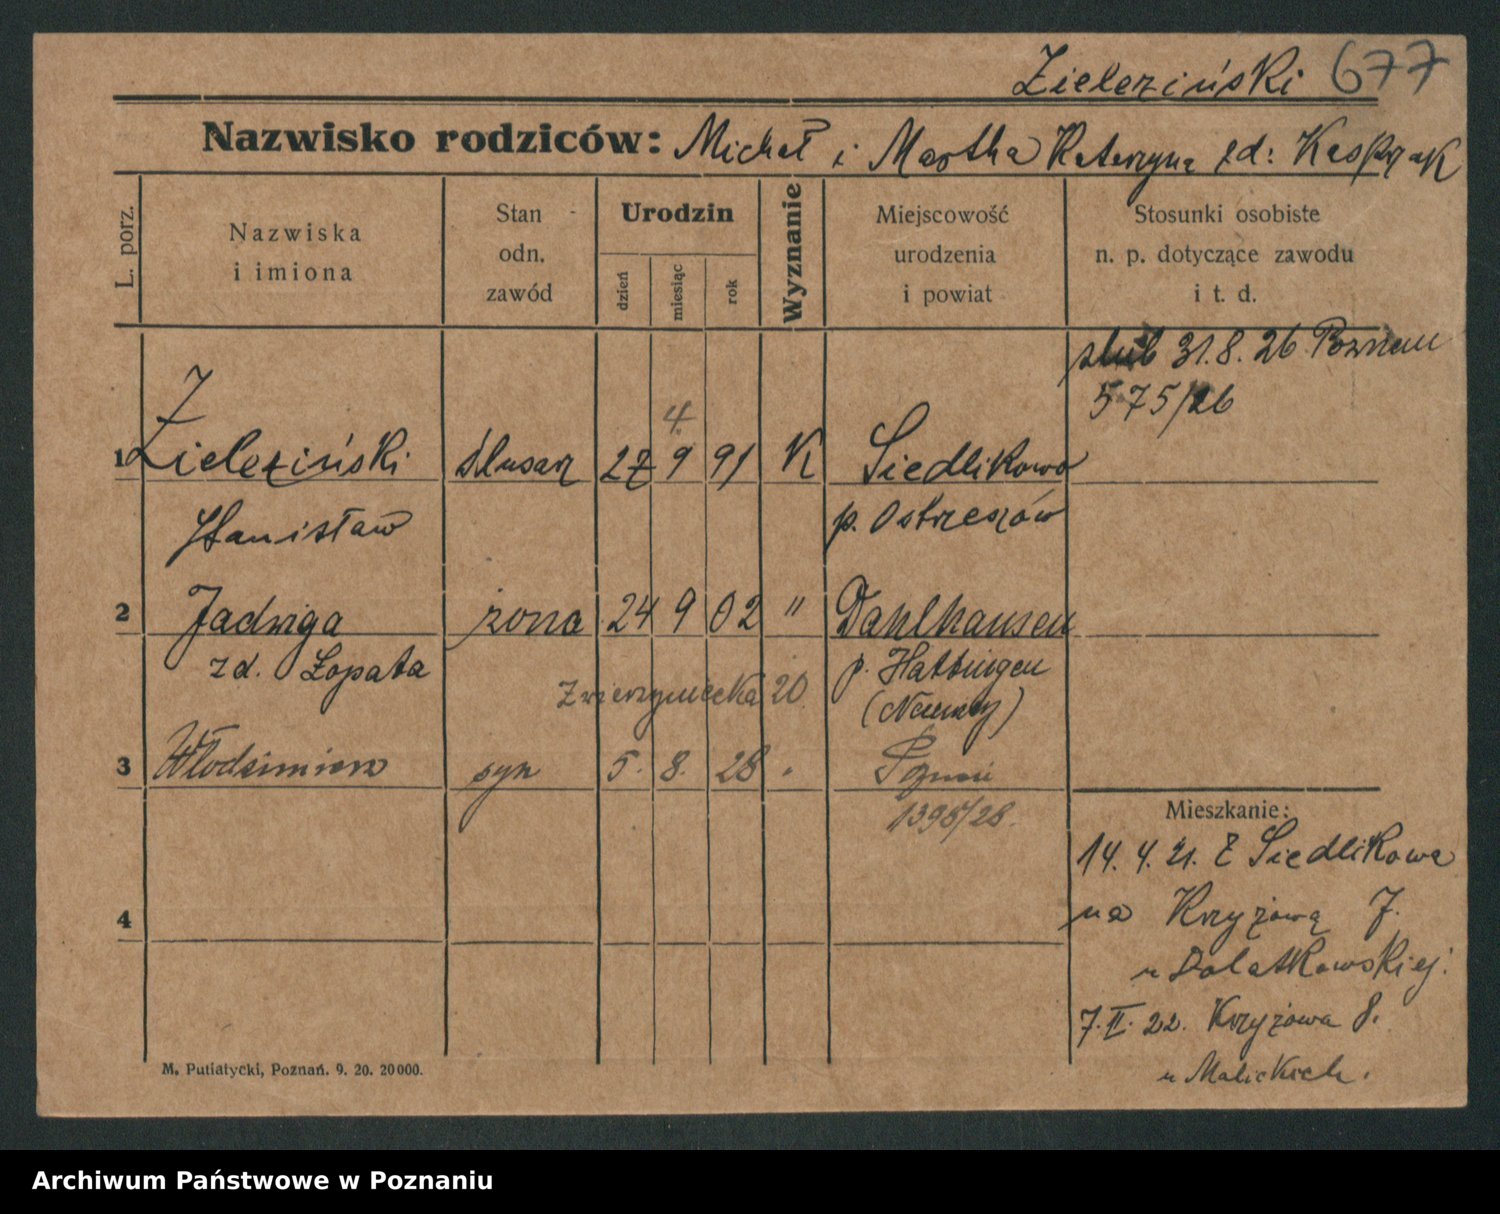 Zieleziński 677
Nazwisko rodziców: Michał i Martha Katarzyna zd: Kasprzak
L. porz.
Nazwiska
i imiona
Stan
odn.
zawód
Urodzin
dzień
miesiąc
rok
Wyznanie
Miejscowość
urodzenia
i powiat
Stosunki osobiste
n. p. dotyczące zawodu
i t. d.
ślub 31.8.26 Poznań
575/26
Z 4.
1 Zieleziński ślusarz 27 9 91 K Siedlikowo
Stanisław p. Ostrzeszów
2 Jadwiga żona 24 9 02 " Dahlhausen
zd. Łopata p. Hattingen
Zwierzyniecka 20 (Niemcy)
3 Włodzimierz syn 5. 8. 28 " Poznań
1395/28.
Mieszkanie:
14. 4. 21. Z Siedlikowa
na Krzyżową 7.
u Dolatkowskiej.
7. II. 22. Krzyżowa 8.
u Malickich.
4
M. Putiatycki, Poznań. 9. 20. 20000.
Archiwum Państwowe w Poznaniu